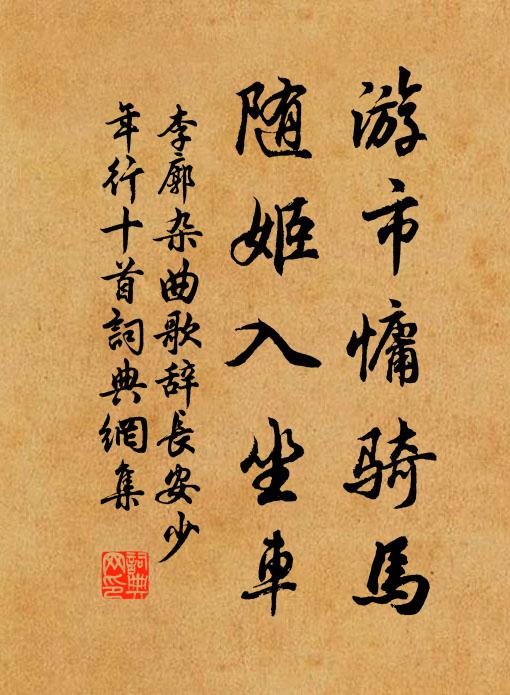 游市慵骑馬
随姬入坐車
李廓杂曲歌辞長安少
年行十首詞典網集
詞典
网印